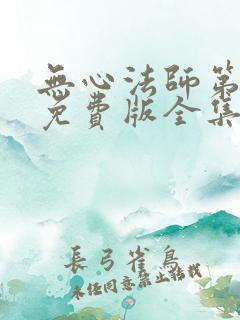 無心法師第
免費版全集
長弓雀鳥
未经同意禁止转载